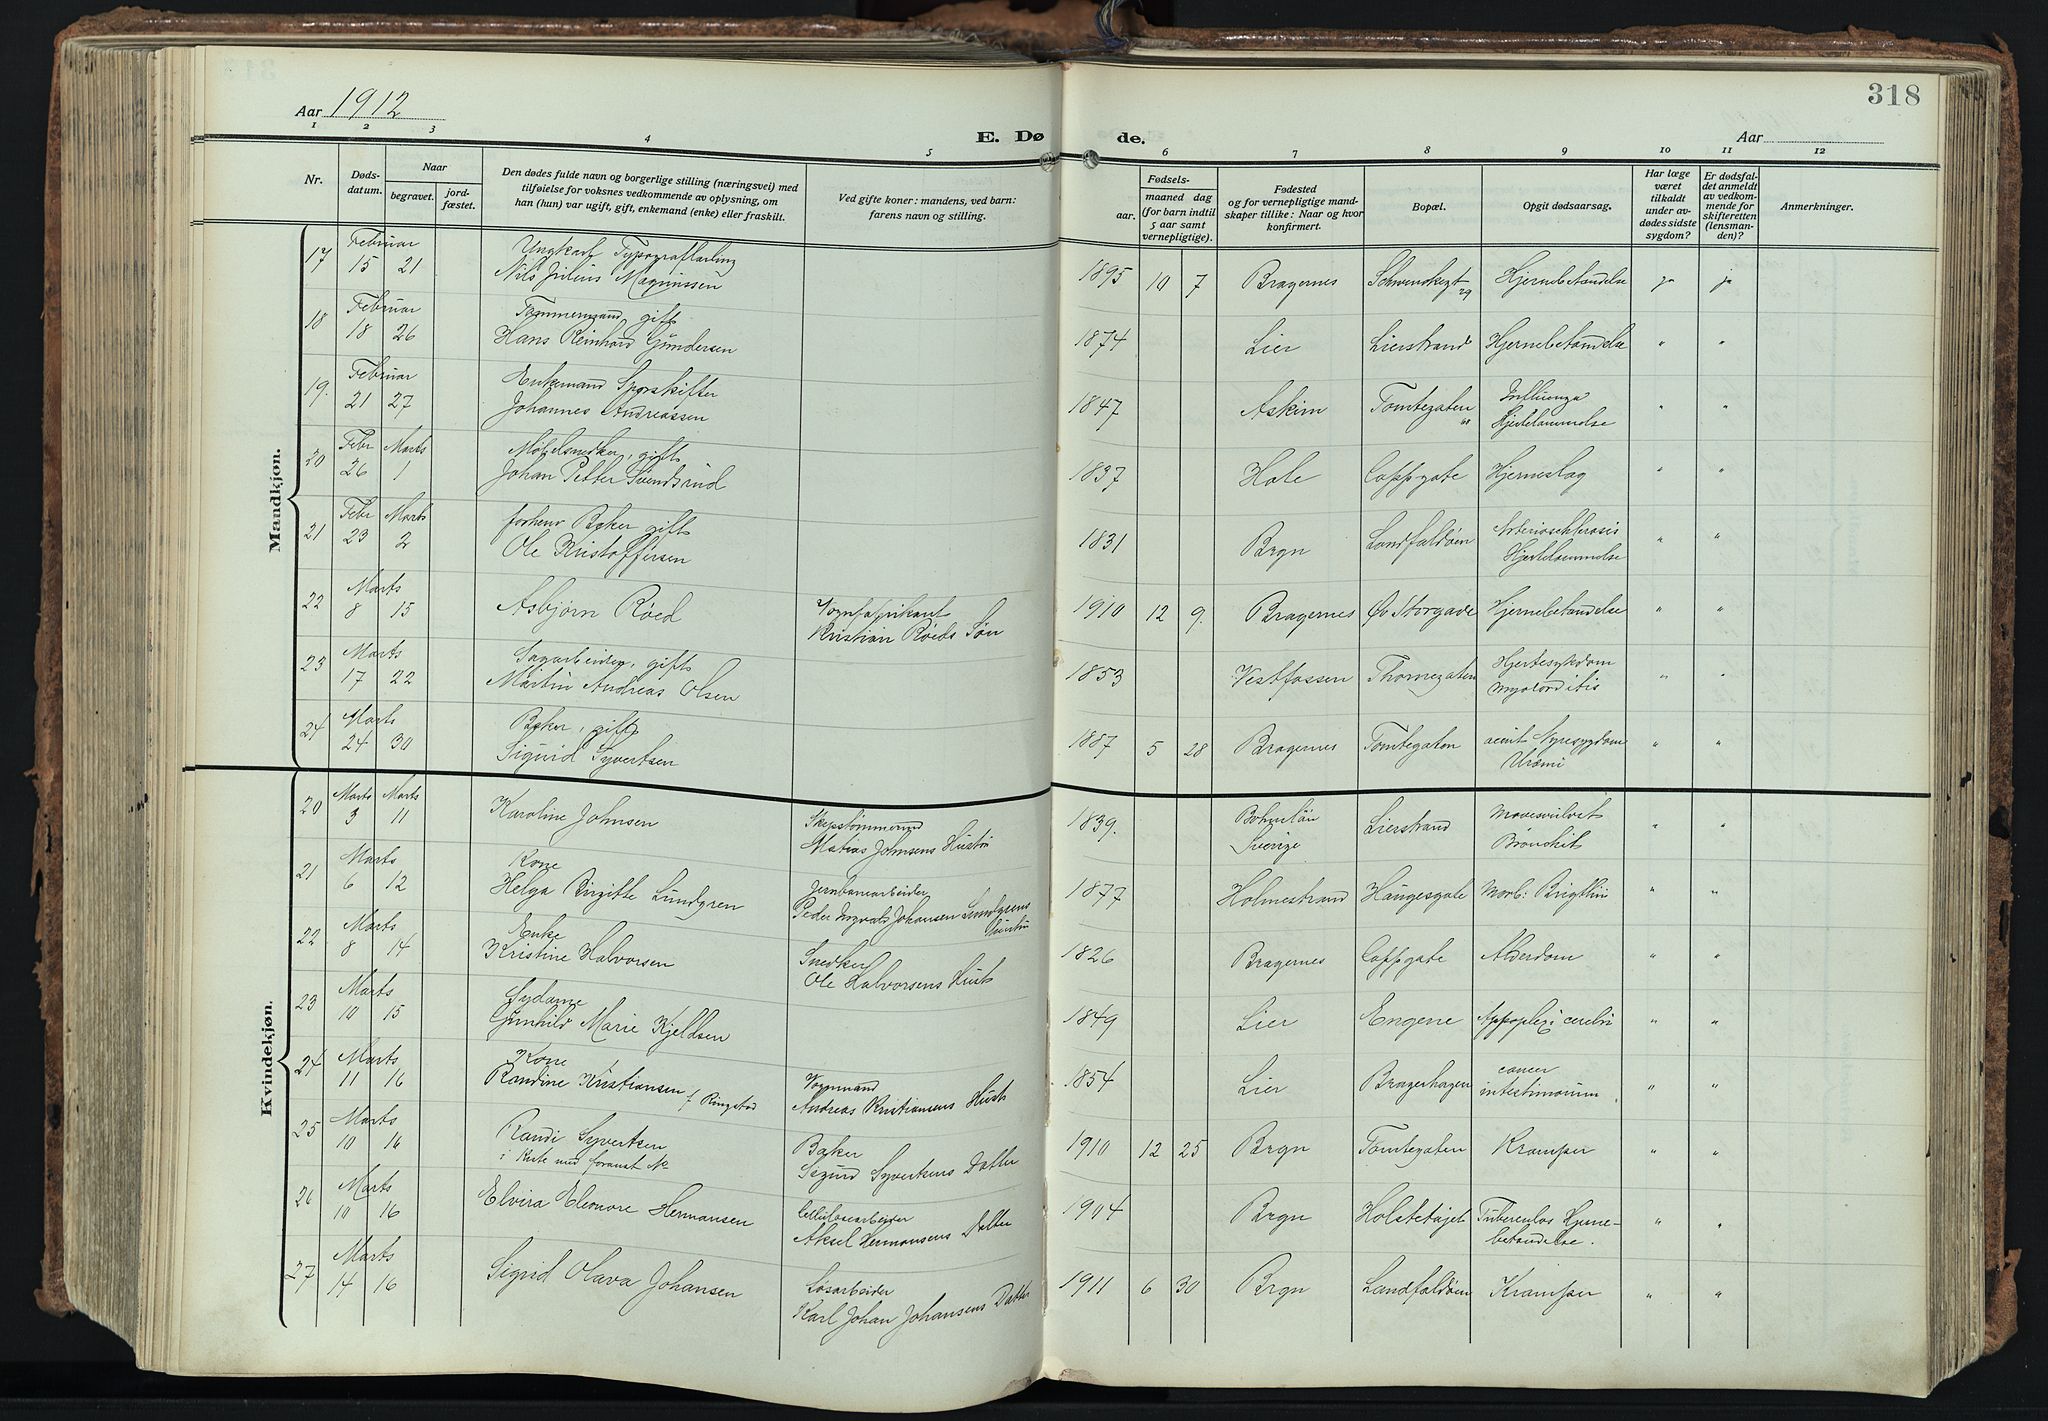 318
Aar 1912
E. Dø de.
Aar
1 2 3 4 5 6 7 8 9 10 11 12
Nr.
Døds-
datum.
Naar
begravet.
jord-
fæstet.
Den dødes fulde navn og borgerlige stilling (næringsvei) med
tilføielse for voksnes vedkommende av oplysning, om
han (hun) var ugift, gift, enkemand (enke) eller fraskilt.
Ved gifte koner: mandens, ved barn:
farens navn og stilling.
Fødsels-
aar.
maaned dag
(for barn indtil
5 aar samt
vernepligtige).
Fødested
og for vernepligtige mand-
skaper tillike: Naar og hvor
konfirmert.
Bopæl.
Opgit dødsaarsag.
Har læge
været
tilkaldt
under av-
dødes sidste
sygdom?
Er dødsfal-
det anmeldt
av vedkom-
mende for
skifteretten
(lensman-
den)?
Anmerkninger.
Mandkjøn.
17 Februar 15 21 Ungkarl Typograflærling
Nils Julius Magnussen 1895 10 7 Bragernes Schwenckegt 29 Hjernebetændelse ja ja
18 Februar 18 26 Tømmermand gift
Hans Reinhard Gundersen 1874 Lier Lierstrand Hjernebetændelse " "
19. Februar 21 27 Enkemand Sporskifter
Johannes Andreassen 1847 Askim Tomtegaten Influenza
Hjertelammelse " "
20 Febr 26 Marts 1 Møbelsnedker, gift
Johan Petter Svendsrud 1837 Hole Coppgate Hjerneslag " "
21 Febr 23 Marts 2 forhenv Baker gift
Ole Kristoffersen 1831 Brgn Landfaldøen Arteriosclerosis
Hjertelammelse " "
22 Marts 8 15 Asbjørn Røed Vognfabrikant
Kristian Røeds Søn 1910 12 9. Bragernes Øv Storgade Hjernebetændelse " "
23 Marts 17 22 Sagarbeider, gift
Martin Andreas Olsen 1853 Vestfossen Thomegaten Hjertesykdom
" "
24 Marts 24 30 Baker, gift
Sigurd Syvertsen 1887 5 28 Bragernes Tomtegaten acut Nyresygdom
Uræmi " "
Kvindekjøn.
20 Marts 3 Marts 11 Karoline Johnsen Skipstømmermd
Matias Johnsens Hustru 1839. Bohuslän
Sverige Lierstrand
Bronchit " "
21 Marts 6 12 Kone
Helga Birgitte Lundgren Jernbanearbeider
Peder Ingvald Johansen Lundgrens
Hustru 1877 Holmestrand Haugesgate Morb: Brigthii " "
22 Marts 8 14 Enke
Kristine Halvorsen Snedker
Ole Halvorsens Hust 1826 Bragernes Coppgate Alderdom " "
23 Marts 10 15 Sydame
Gunhild Marie Kjeldsen 1849 Lier Engene Appoplexi cerebri " "
24 Marts 11 16 Kone
Randine Kristiansen f Ringstad Vognmand
Andreas Kristiansens Hust 1854 Lier Bragerhagen cancer
intestinorum " "
25 Marts 10 16 Randi Syvertsen
i Kiste med Baker
Sigurd Syvertsens Datter 1910 12 25 Brgn Tomtegaten Kramper " "
26 Marts 10 16 Elvira Eleonore Hermansen Cellulosearbeider
Aksel Hermansens Datter 1904 Brgn Tuberculøs Hjerne-
betændelse. " "
27 Marts 14 16 Sigrid Olava Johansen Løsarbeider
Karl Johan Johansens Datter 1911 6 30 Brgn Landfaldøen Kramper " "